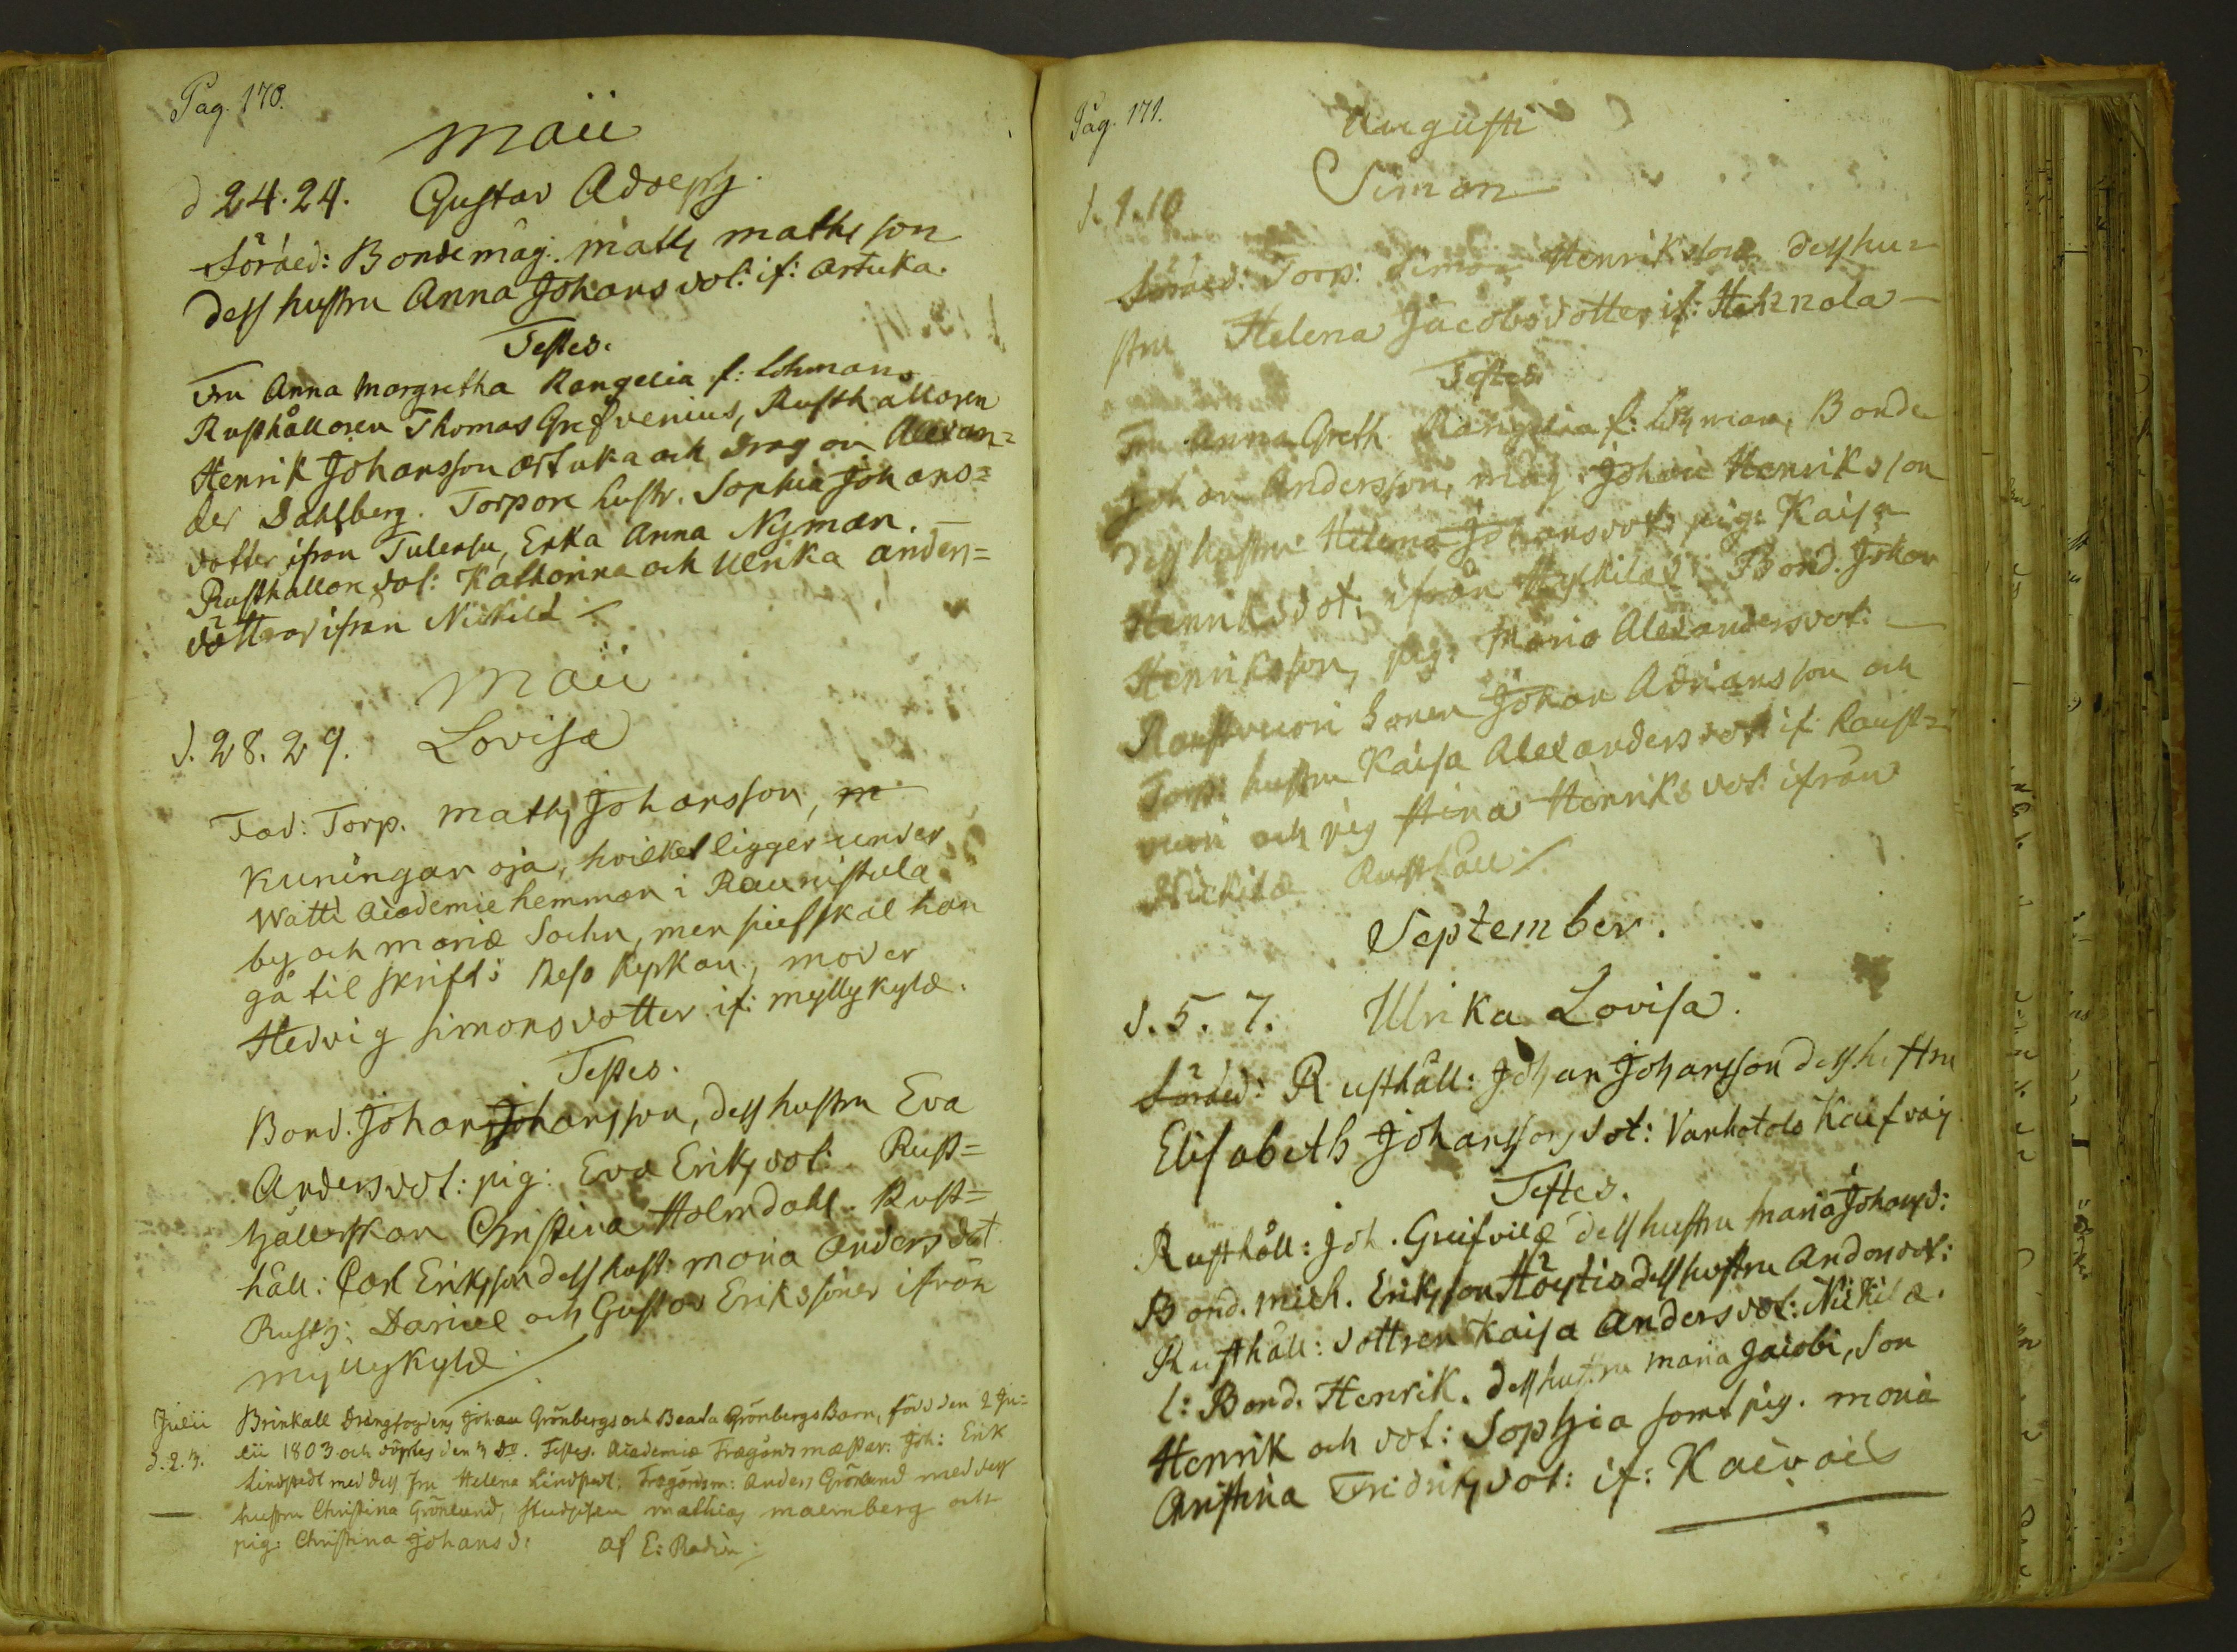 Pag. 170.
Maii
d 24. 24. Gustav Adolph.
föräld: Bondemåg. Math mathsson
dess hustru Anna Johansdot: if: Artuka.
Testes.
Fru Anna Margretha Rangelia f: Lohman
Rusthållaren Thomas Grefvenius, Rusthållaren
Henrik Johansson Artuka och Dragon Alexan=
der Dahlberg. Torpare hustr. Sophia Johans=
dotter ifrån Tulensu, Enka Anna Nyman. —
Rusthållare dot: Katharina och Ulrika Anders=
döttrar ifrån Nickilä
Maii
d. 28. 29. Lovisa
Fad: Torp. Maths Johansson,
Kuningan oja, hvilket ligger under
Wätti Academie hemman i Raunistula
by och Mariæ Sochn, men sielf skal han
gå til skrift i Reso kyrkan, moder
Hedvig Simonsdotter if: Myllykylä.
Testes.
Bond. Johan Johansson, dess hustru Eva
Andersdot: pig: Eva Eriksdot: Rust=
hållerskan Christina Holmdahl. Rust=
håll: Carl Eriksson dess hust: Maria Andersdot
Rusth: Daniel och Gustav Erikssöner ifrån
Myllykylä
Julii Brinkall Drängfogdens Johan Grönbergs och Beata Grönbergs Barn, född den 2 Ju=
d. 2. 3. lii 1803 och döptes den 3 do. Testes. Academiæ Trægårds mæstar: Joh: Erik
Lindstedt med dess Fru Helena Lindstedt, Trægårdsm: Anders Grönlund med dess
hustru Christina Grönlund, Malmberg och
pig: Christina Johansd: af E: Radin
Pag. 171.
Augusti
Siman
d. 9. 10
föräld: Torp: Simon Henriksson dess hu=
stru Helena Jacobsdotter if: Hehnola —
Testes
Fru Anna Greth. Rangelia f: Lohman, Bonde
Johan Andersson, måg Johan Henriksson
dess hustru Helena Johansdot: pig: Kaisa
Henriksdot: ifrån Bond. Johan
Henriksson, pig: Maria Alexandersdot: —
Raustvuori Sonen Johan Adriansson och
Torp: hustru Kaisa Alexandersdot: if: Raust=
vuori och pig Stina Henriksdot: ifrån
Nickilä Rusthåll
September.
d. 5. 7. Ulrika Lovisa.
föräld: Rusthåll: Johan Johansson dess hustru
Elisabeth Johanssons dot: Vanhatalo
Testes.
Rusthåll: Joh. Greifvilä dess hustru Maria Johansd:
Bond. Mich. Eriksson Höytis dess hustru Andersdot:
Rusthåll: dottren Kaisa Andersdot: Nickilä.
l: Bond. Henrik. dess hustru Maria Jacobi, Son
Henrik och dot: Sophia samt pig. Maria
Christina Fridriksdot: if: Kaivais